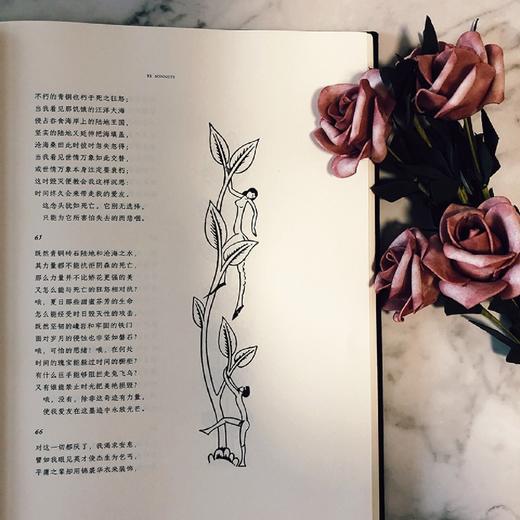 SONNETS
不朽的青铜也朽于死之狂怒;
当我看见那饥饿的汪洋大海
侵占吞食海岸上的陆地王国,
坚实的陆地又延伸把海填盖,
沧海桑田此时彼时忽失忽得;
当我看见世情万象如此交替,
或世情万象本身注定要衰朽;
这时毁灭便教会我这样沉思:
时间终久会来带走我的爱友。
这念头犹如死亡,它别无选择,
只能为它所害怕失去的而悲咽。
65
既然青铜砖石陆地和沧海之水,
其力量都不能抗拒阴森的死亡,
那么力量并不比娇花更强的美
又怎么能与死亡的狂怒相对抗?
哦,夏日那些甜蜜芬芳的生命
怎么能经受时日毁灭性的攻击,
既然坚韧的巉岩和牢固的铁门
面对岁月的侵蚀也非坚如磐石?
哦,可怕的思绪!哦,在何处
时间的瑰宝能躲过时间的橱柜?
有什么巨手能够阻拦走兔飞乌?
又有谁能禁止时光把美艳损毁?
哦,没有,除非这奇迹有力量,
使我爱友在这墨迹中永放光芒。
66
对这一切都厌了,我渴求安息,
譬如我眼见英才俊杰生为乞丐,
平庸之辈却用锦裘华衣来装饰,